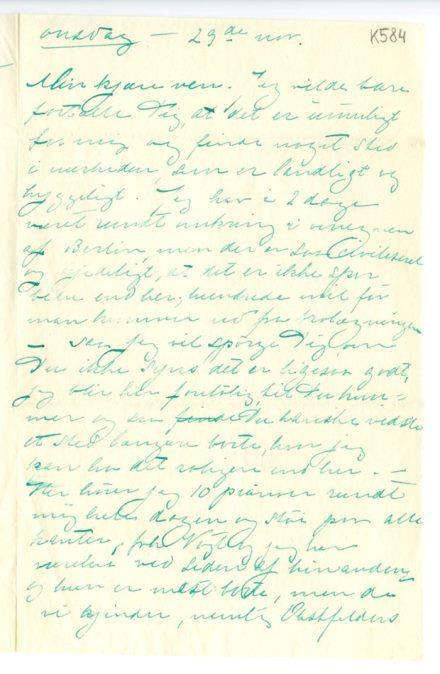 onsdag – 29de nov.
K584
Min kjære ven. Jeg vilde bare
fortælle Dig, at det er umuligt
for mig og finde noget sted
i nærheden, som er landligt og
hyggeligt. Jeg har i 2 dage
været rundt omkring i omegnen
af Berlin, men der er så civiliseret
og kjedeligt, at det er ikke spor
bedre end her; hundrede mil før
man kommer ud fra
– saa jeg vil spørge Dig, om
Du ikke synes det er ligesaa godt,
jeg blir her foreløbig, til Du kom=
mer og saa finde Du kanske vidste
et sted længere borte, hvor jeg
kan ha det roligere end her. –
Her hører jeg 10 pianoer rundt
mig hele dagen og støi paa alle
kanter, frk og jeg har
værelse ved siden af hinanden,
og hun er mest borte, men de
vi kjender, nemlig Obstfelders